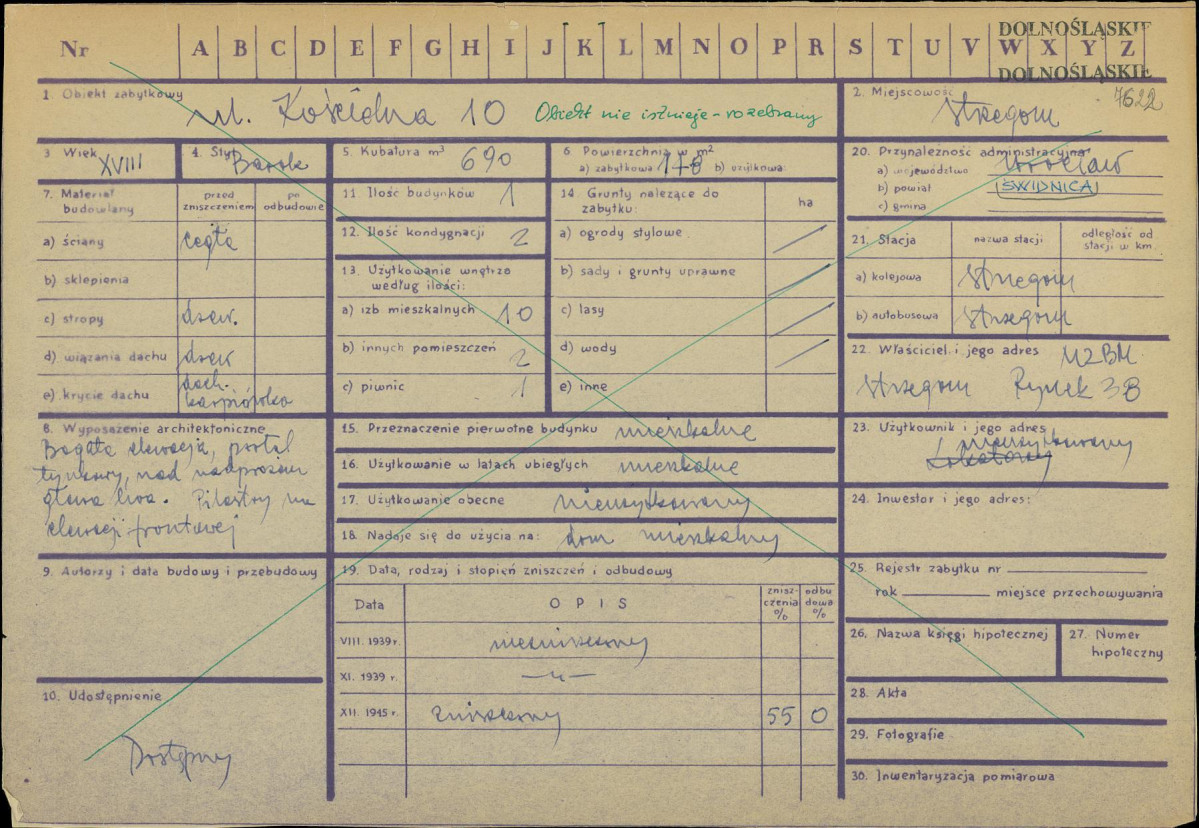 Nr A B C D E F G H I J K L M N O P R S T U V W X Y Z
DOLNOŚLĄSKIE
DOLNOŚLĄSKIE
1. Obiekt zabytkowy ul. Kościelna 10 Obiekt nie istnieje - rozebrany
2. Miejscowość 7622
Strzegom
3 Wiek XVIII
4. Styl Barok
5. Kubatura m³ 690
6 Powierzchnia w m²
a) zabytkowa 178 b) użytkowa
7. Materiał budowlany
przed zniszczeniem
po odbudowie
a) ściany cegła
b) sklepienia
c) stropy drew.
d) wiązania dachu drew
e) krycie dachu dach. karpiówka
8. Wyposażenie architektoniczne
Bogata elewacja, portal
tynkowy, nad nadprożem
głowa lwa. Pilastry na
elewacji frontowej
9. Autorzy i data budowy i przebudowy
10. Udostępnienie
Dostępny
11 Ilość budynków 1
12. Ilość kondygnacji 2
13. Użytkowanie wnętrza
według ilości:
a) izb mieszkalnych 10
b) innych pomieszczeń 2
c) piwnic 1
14. Grunty należące do
zabytku:
ha
a) ogrody stylowe
b) sady i grunty uprawne
c) lasy
d) wody
e) inne
15. Przeznaczenie pierwotne budynku mieszkalne
16. Użytkowanie w latach ubiegłych mieszkalne
17. Użytkowanie obecne nieużytkowany
18. Nadaje się do użycia na: dom mieszkalny
19. Data, rodzaj i stopień zniszczeń i odbudowy
Data
OPIS
znisz-
czenia
%
odbu
dowa
%
VIII. 1939 r. niezniszczony
XI. 1939 r. —„—
XII. 1945 r. zniszczony 55 0
20. Przynależność administracyjna
a) województwo Wrocław
b) powiat ŚWIDNICA
c) gmina
21. Stacja
nazwa stacji
odległość od
stacji w km.
a) kolejowa Strzegom
b) autobusowa Strzegom
22. Właściciel i jego adres MZBM
Strzegom Rynek 38
23. Użytkownik i jego adres
nieużytkowany
Lokatorzy
24. Inwestor i jego adres:
25. Rejestr zabytku nr
rok miejsce przechowywania
26. Nazwa księgi hipotecznej
27. Numer
hipoteczny
28. Akta
29. Fotografie
30. Inwentaryzacja pomiarowa